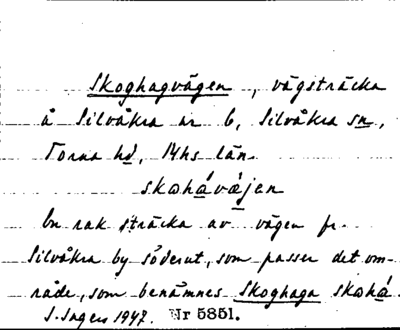 Skoghagvägen, vägsträcka
å Silvåkra nr 6, Silvåkra sn,
Torna hd, Mhs län.
skωhávæ̀jen
En rak sträcka av vägen fr.
Silvåkra by söderut, som passer det om-
råde, som benämnes Skoghaga skωhá.
S. Ingers 1947. Nr 5851.